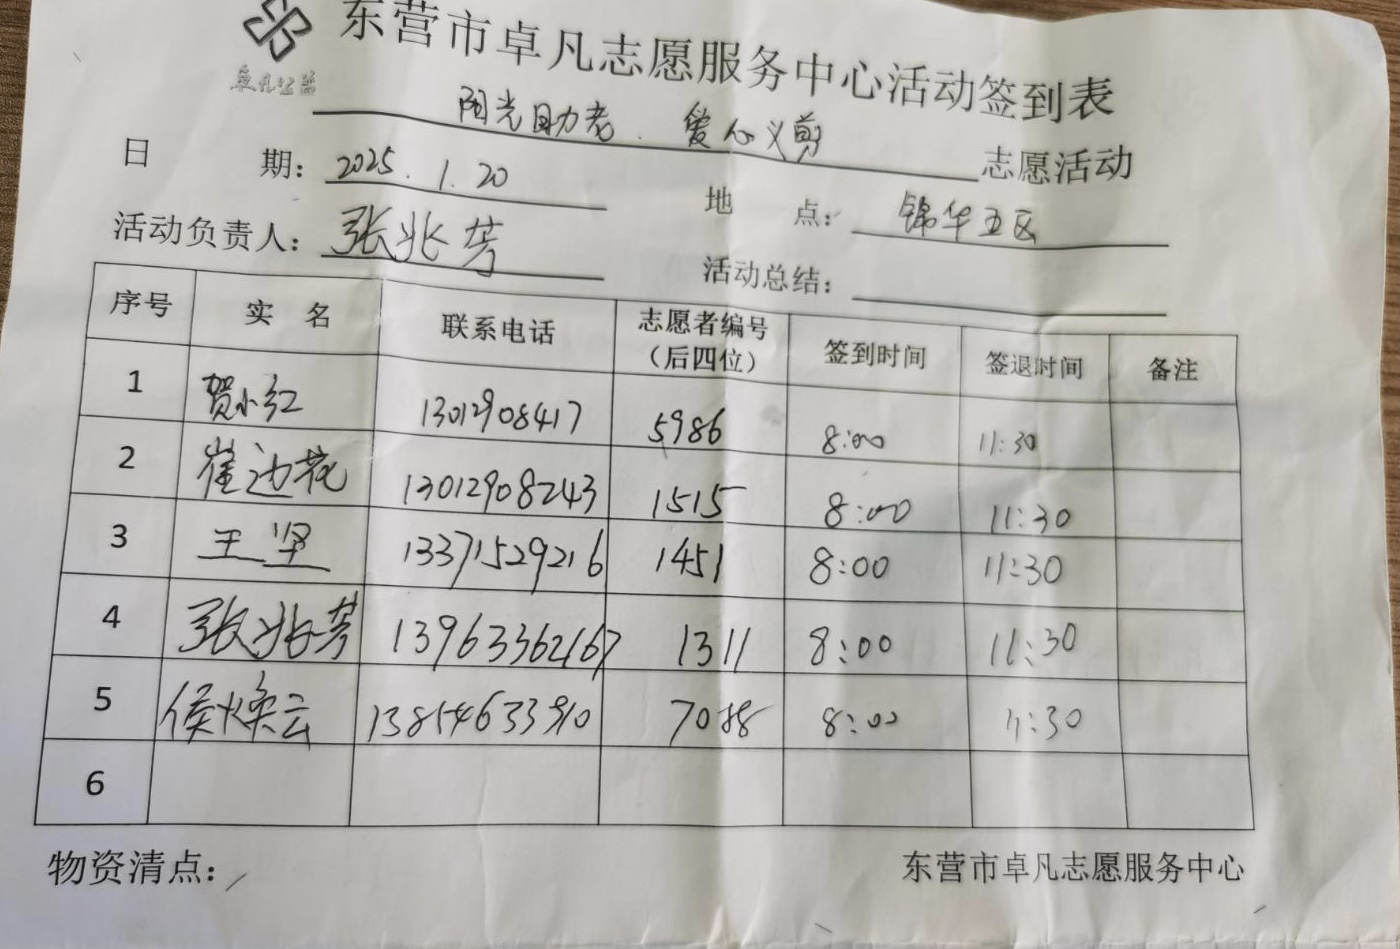 东营市卓凡志愿服务中心活动签到表
卓凡公益
阳光助老 . 爱心义剪 志愿活动
日 期: 2025.1.20 地 点: 锦华五区
活动负责人: 张兆芳 活动总结:
序号 实 名 联系电话 志愿者编号（后四位） 签到时间 签退时间 备注
1 贺小红 13012908417 5986 8:00 11:30
2 崔边花 13012908243 1515 8:00 11:30
3 王坚 13371529216 1451 8:00 11:30
4 张兆芳 13963362167 1311 8:00 11:30
5 侯焕云 13854633910 7088 8:00 11:30
6
物资清点: /
东营市卓凡志愿服务中心